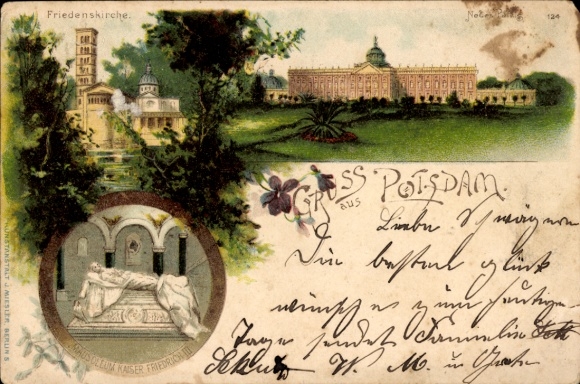 Friedenskirche.
Neues Palais
124
GRUSS aus POTSDAM.
Liebe Schwägerin
Die besten glück
wünsche zum heutigen
Tage sendet Familie
W. M. u
MAUSOLEUM KAISER FRIEDRICH III
KUNSTANSTALT J. MIESLER, BERLIN S.